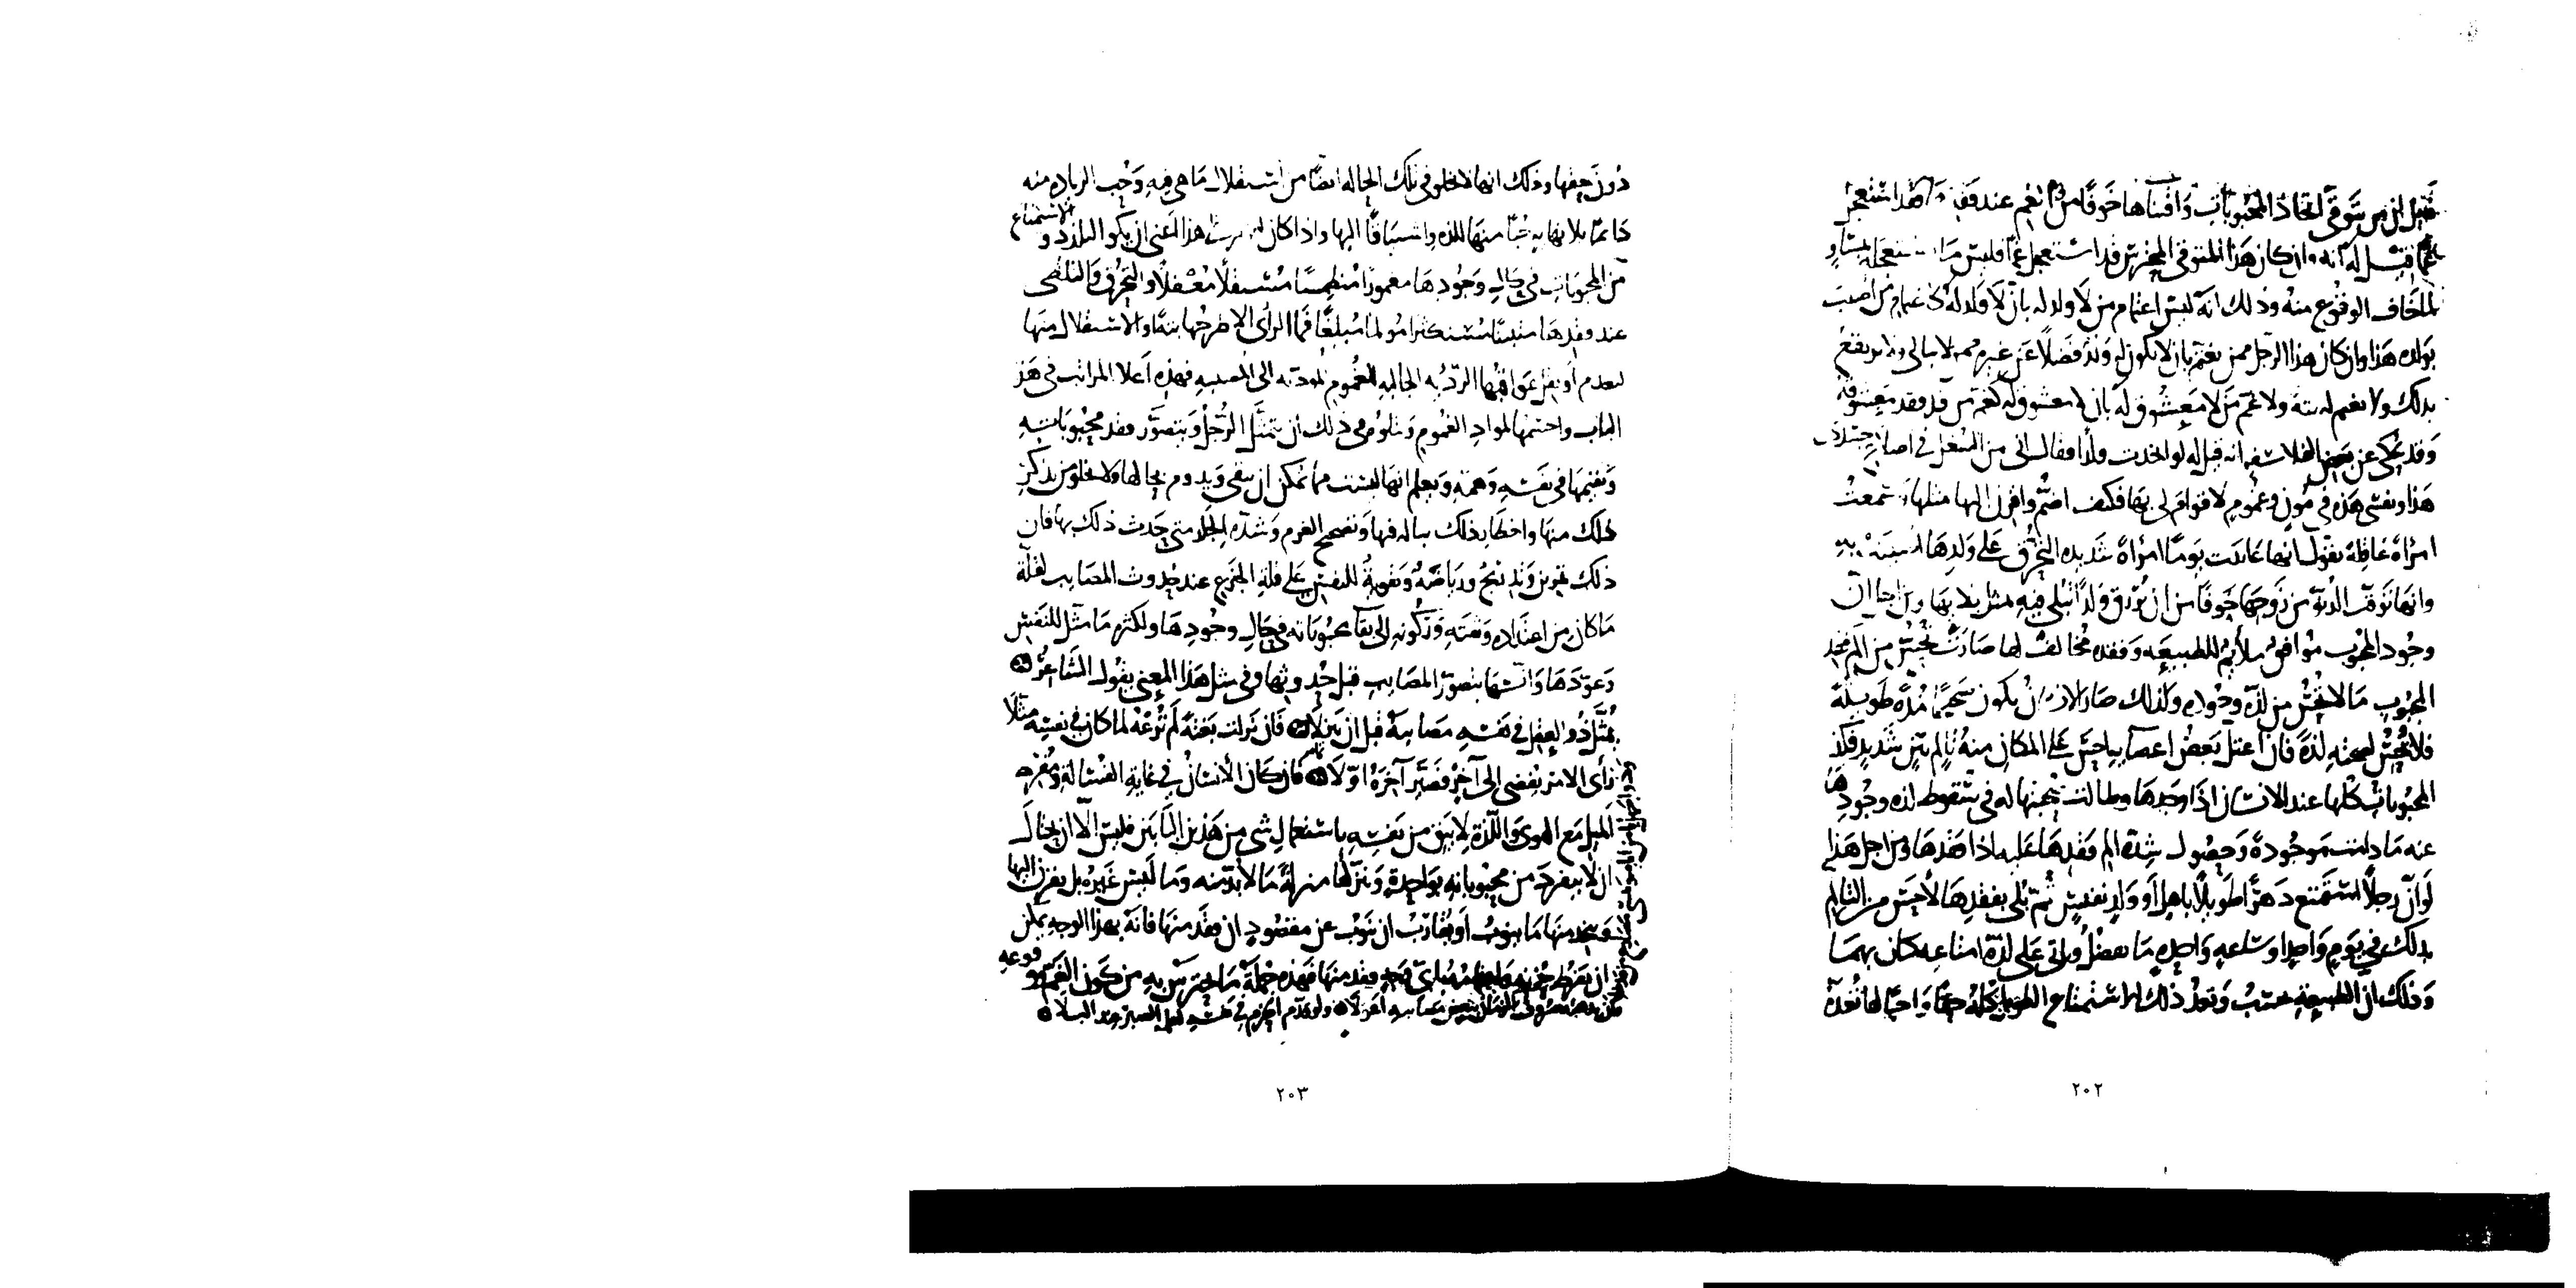 فقيل ان من يتوقى اتخاذ المحبوبات واقتناها خوفا من الغم عند فقد قد استعجل
غما قيل له انه وان كان هذا المتوقي المحترس قد استعجل غما فليس ما استعجله بمساو
لما خاف الوقوع منه وذلك انه ليس اغتمام من لا ولد له بان لا ولد له كاغتمام من اصيب
بولده هذا وان كان هذا الرجل ممن يغتم بان لا يكون له ولد فضلا عن غيره ممن لا يبالي ولا
بذلك ولا يغتم له بتة ولا غم من لا معشوق له بان لا معشوق له كغم من قد فقد معشوقه
وقد يحكى عن بعض الفلاسفة انه قيل له لو اتخذت ولدا فقال اني من الشغل في اصلاح جسدي
هذا ونفسي هذه في مؤن وغموم لا قوام لي بها فكيف اضم واقرن اليها مثلها وسمعت
امراة عاقلة تقول انها عاينت يوما امراة شديدة التحرق على ولدها اصيبت به
وانها توقت الدنو من زوجها خوفا من ان ترزق ولدا تبلى فيه بمثل بلائها ومن اجل ان
وجود المحبوب موافق ملائم للطبيعة وفقده مخالف لها صارت تحس من الم فقد
المحبوب ما لا تحس من لذة وجوده ولذلك صار الانسان يكون صحيحا مدة طويلة
فلا يحس لصحته لذة فان اعتل بعض اعضايه احس على المكان منه بالم شديد فكذلك
المحبوبات كلها عند الانسان اذا وجدها وطالت صحبتها له في سقوط لذة وجودها
عنه ما دامت موجودة وحصول شدة الم فقدها عليه اذا فقدها ومن اجل هذا
لو ان رجلا استمتع دهرا طويلا باهل وولد نفيس ثم بلي بفقدها لاحس من التالم
بذلك في يوم واحد او ساعة واحدة ما يفضل ويأتي على لذة امتاعه كان بهما
وذلك ان الطبيعة تحتسب وتعد ذلك الاستمتاع الطويل كله حقا واجبا لها تعده
٢٠٢
دون حقها وذلك انها لا تخلو في تلك الحالة ايضا من استقلال ما هي فيه وحب الزيادة منه
دائما بلا نهاية حبا منها للذة واشتياقا اليها واذا كان هذا اعني ان يكون التلذذ والاستمتاع
من المحبوبات في حال وجودها مغمورا منطمسا مستقلا مغفلا والتحرق والتلظي
عند فقدها متبينا مستكثرا مؤلما مبلغا فما الراي الا طرحها بتة او الاستقلال منها
لتعدم او تقل عواقبها الردية الجالبة للغموم المؤذية الى المصيبة فهذه اعلا المراتب في هذا
الباب واحسمها لمواد الغموم ويتلوه في ذلك ان يتمثل الرجل ويتصور فقد محبوباته
ويقيمها في نفسه ووهمه ويعلم انها ليست مما يمكن ان يبقى ويدوم بحالها ولا يخلو من تذكر
ذلك منها واخطار ذلك بباله فيها وتصحيح العزم وشدة الجلد متى حدث ذلك بها فان
ذلك تمرين وتدريج ورياضة وتقوية للنفس على قلة الجزع عند حدوث المصايب لقلة
ما كان من اعتداده وثقته وركونه الى بقاء محبوباته في حال وجودها ولكثرة ما مثل للنفس
وعودها وانسها بتصور المصايب قبل حدوثها وفي مثل هذا المعنى يقول الشاعر
يمثل ذو العقل في نفسه مصائبه قبل ان تنزلا فان نزلت بغتة لم ترعه لما كان في نفسه مثلا
راى الامر يفضي الى آخر فصير آخره اولا فان كان الانسان في غاية الفسالة ومفرط
الميل مع الهوى واللذة لا يثق من نفسه باستعمال شيء من هذين البابين فليس الا ان يحتال
ان لا ينفرد من محبوباته بواحدة وينزلها منزلة ما لا بد منه وما ليس غيره بل يقرن اليها
ويتخذ منها ما ينوب او يقارب ان ينوب عن مفقود ان فقد منها فانه بهذا الوجه يمكن
ان لا يفرط حزنه واغتمامه باي واحد فقد منها فهذه جملة ما يحترس به من كون الغم ووقوعه
٢٠٣